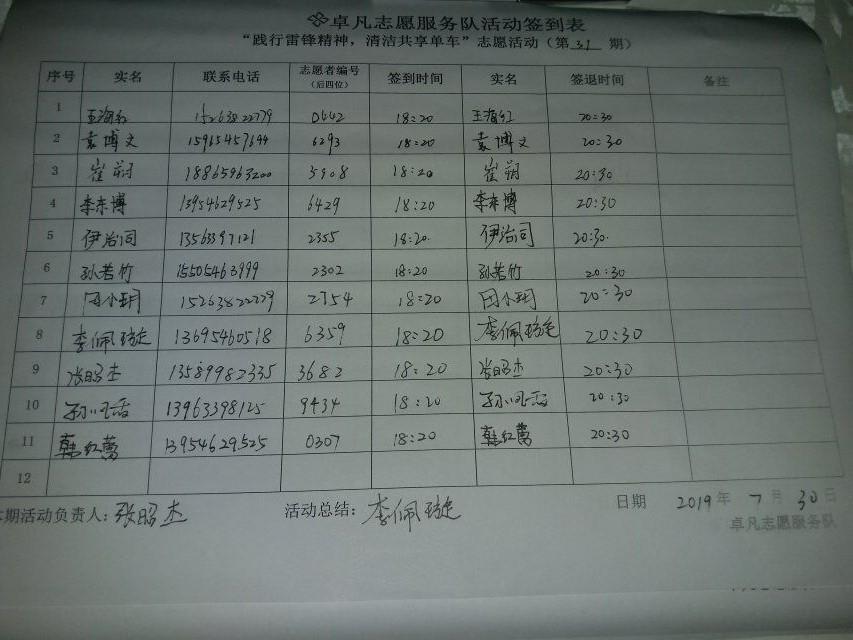 卓凡志愿服务队活动签到表
“践行雷锋精神，清洁共享单车”志愿活动（第 31 期）
序号 实名 联系电话 志愿者编号（后四位） 签到时间 实名 签退时间 备注
1 王海红 15263822779 0642 18:20 王海红 20:30
2 袁博文 15965457644 6293 18:20 袁博文 20:30
3 崔翔 18865963200 5908 18:20 崔翔 20:30
4 李来博 13954629525 6429 18:20 李来博 20:30
5 伊治同 1356397121 2355 18:20 伊治同 20:30
6 孙若竹 15505463999 2302 18:20 孙若竹 20:30
7 田小玥 15263822779 2754 18:20 田小玥 20:30
8 李佩璇 13695460518 6359 18:20 李佩璇 20:30
9 张昭杰 13589982335 3682 18:20 张昭杰 20:30
10 13963398125 9434 18:20 20:30
11 韩红蕾 13954629525 0307 18:20 韩红蕾 20:30
12
本期活动负责人：张昭杰 活动总结：李佩璇 日期 2019 年 7 月 30 日
卓凡志愿服务队